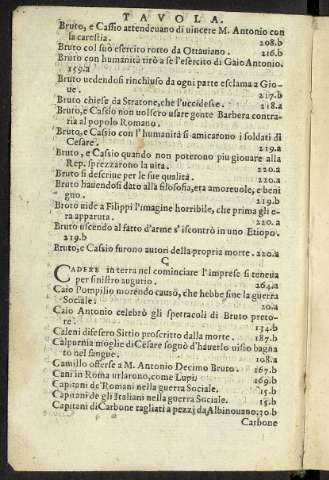 TAVOLA.
Bruto, e Cassio attendeuano di uincere M. Antonio con
la carestia. 208.b
Bruto col suo esercito rotto da Ottauiano. 216.b
Bruto con humanità tirò a se l'esercito di Gaio Antonio.
159.a
Bruto uedendosi rinchiuso da ogni parte esclama a Gio-
ue. 217.b
Bruto chiese da Stratone, che l'uccidesse. 218.a
Bruto, e Cassio non uolsero usare gente Barbera contra-
ria al popolo Romano. 219.a
Bruto, e Cassio con l'humanità si amicarono i soldati di
Cesare. 219.a
Bruto, e Cassio quando non poterono piu giouare alla
Rep. sprezzarono la uita. 220.a
Bruto si descriue per le sue qualità. 220.a
Bruto hauendosi dato alla filosofia, era amoreuole, e beni
gno. 219.b
Bruto uide a Filippi l'imagine horribile, che prima gli e-
ra apparuta. 220.a
Bruto uscendo al fatto d'arme s'iscontrò in uno Etiopo.
219.b
Bruto, e Cassio furono autori della propria morte. 220.a
C
CADERE in terra nel cominciare l'imprese si teneua
per sinistro augurio. 264.a
Caio Pompilio morendo causò, che hebbe fine la guerra
Sociale. 20.a
Caio Antonio celebrò gli spettacoli di Bruto preto-
re. 134.b
Caleni difesero Sittio proscritto dalla morte. 187.b
Calpurnia moglie di Cesare sognò d'hauerlo uisto bagna
to nel sangue. 108.a
Camillo offerse a M. Antonio Decimo Bruto. 167.b
Cani in Roma urlarono, come Lupi. 169.b
Capitani de' Romani nella guerra Sociale. 15.b
Capitani de gli Italiani nella guerra Sociale. 15.b
Capitani di Carbone tagliati a pezzi da Albinouano. 30.b
Carbone